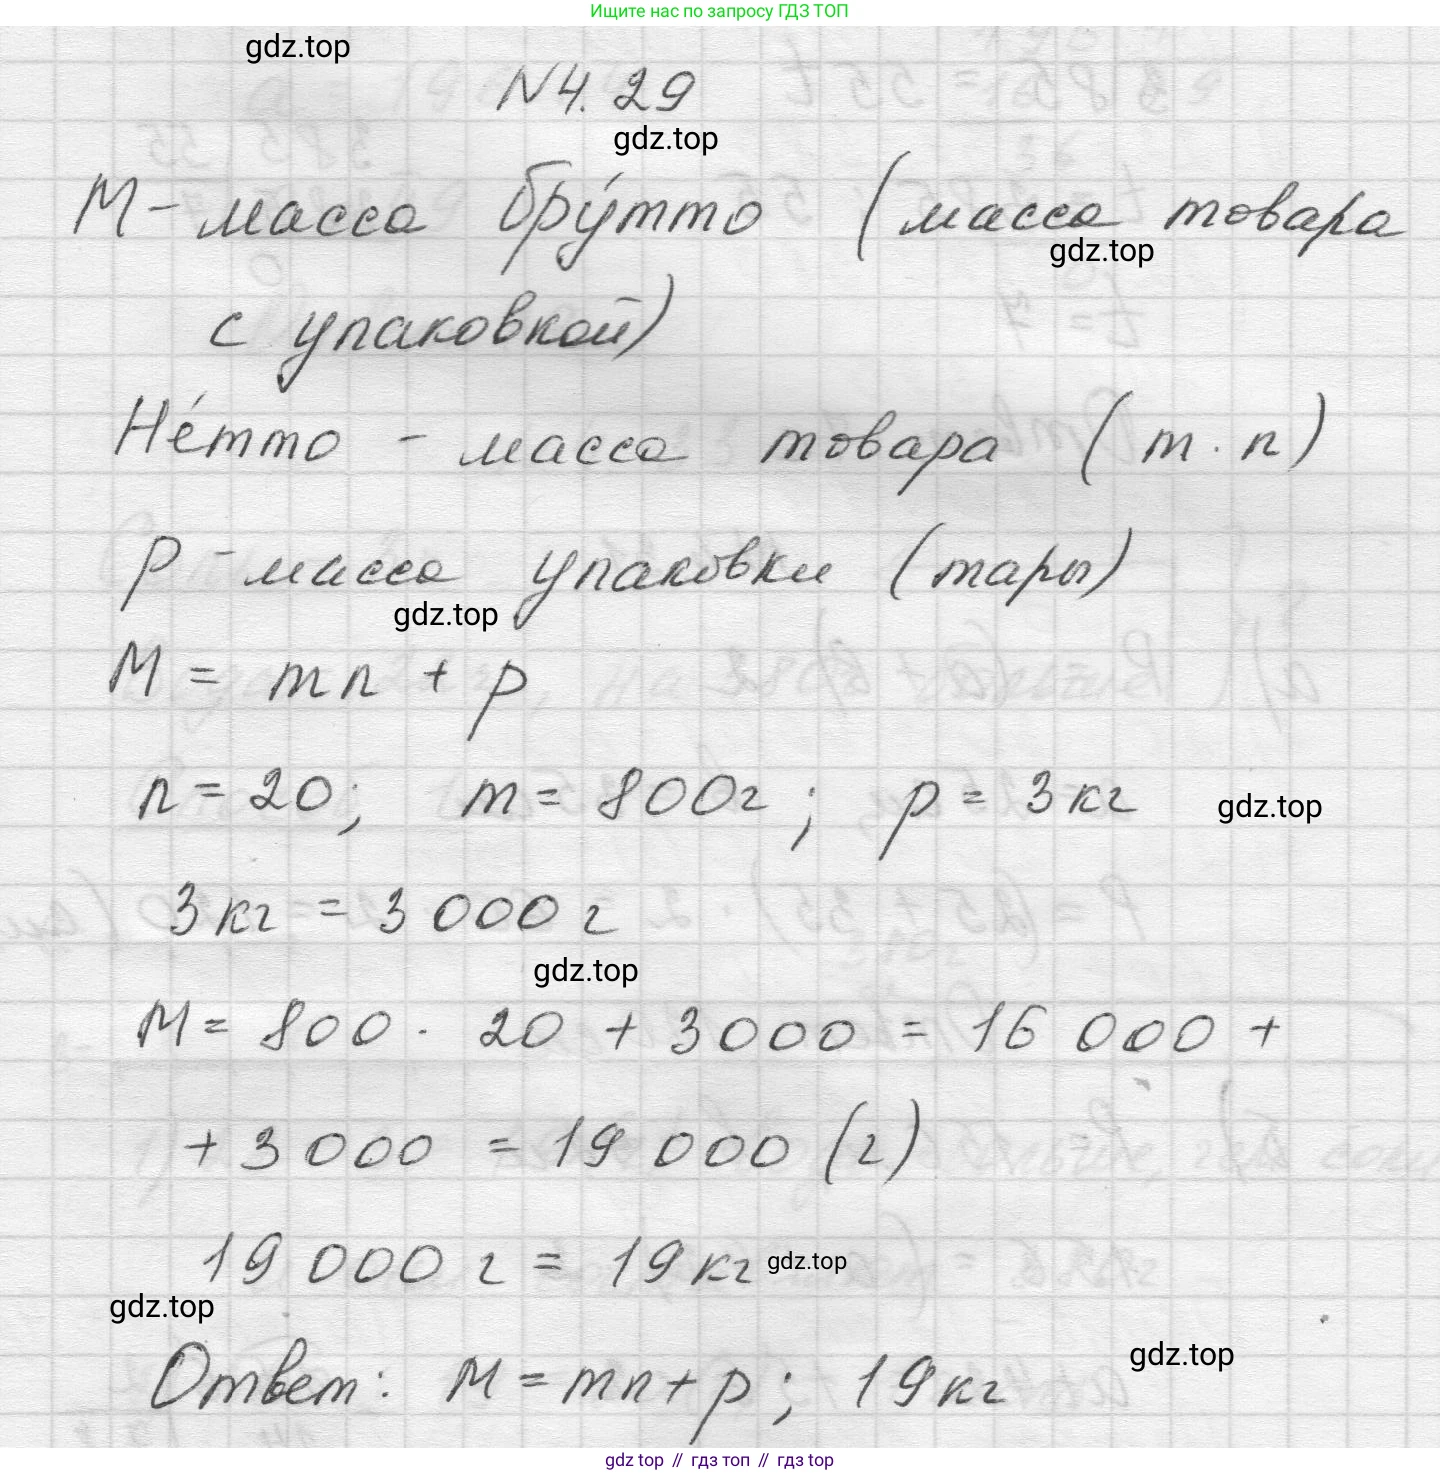 Ищите нас по запросу ГДЗ ТОП
gdz.top
N4.29
gdz.top
М - масса бру́тто (масса товара
gdz.top
с упаковкой)
Не́тто - масса товара (m · n)
p - масса упаковки (тары)
gdz.top
M = mn + p
n = 20; m = 800г; p = 3кг
gdz.top
3кг = 3 000 г
gdz.top
M = 800 · 20 + 3000 = 16 000 +
+ 3 000 = 19 000 (г)
19 000 г = 19кг
gdz.top
gdz.top
gdz.top
Ответ: M = mn + p; 19кг
gdz top // гдз топ // гдз top